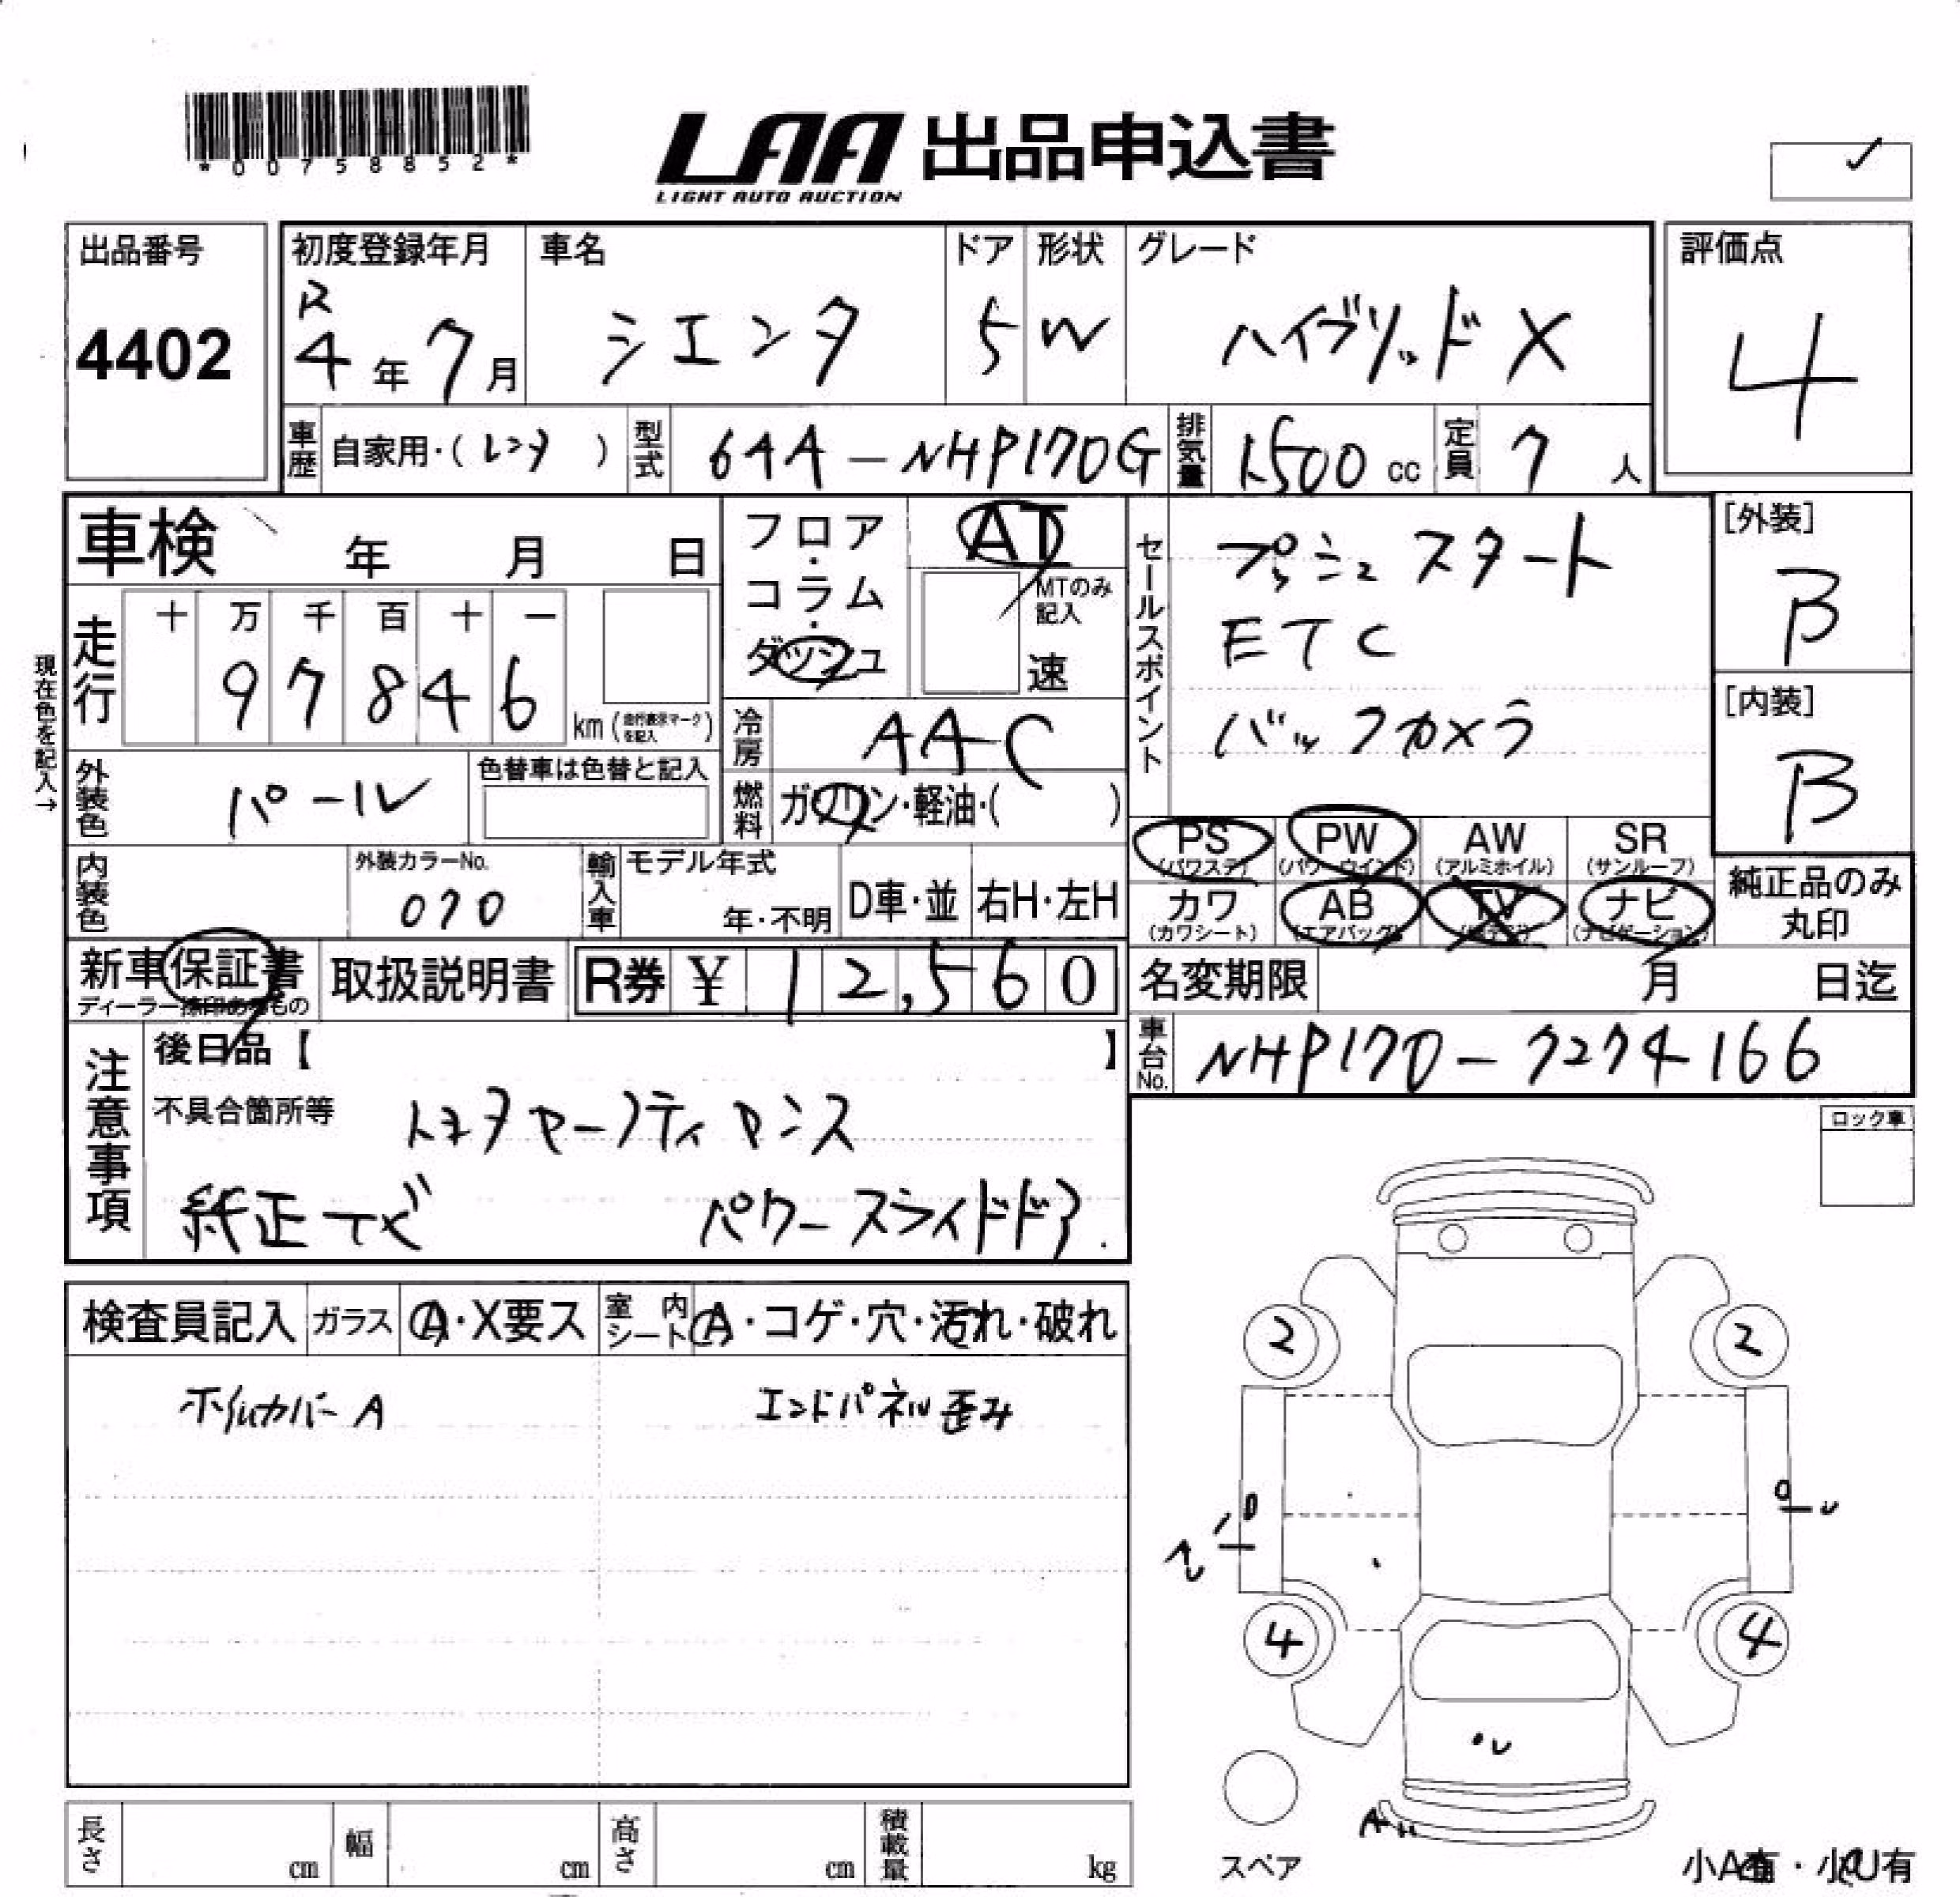 *00758852*
LAA 出品申込書
LIGHT AUTO AUCTION
出品番号
4402
初度登録年月
R
4年7月
車名
シエンタ
ドア
5
形状
W
グレード
ハイブリッドX
評価点
4
車歴
自家用・(レンタ)
型式
6AA-NHP170G
排気量
1500cc
定員
7人
車検 年 月 日
走行
十 万 千 百 十 一
97846
km(走行表示マークを記入)
現在色を記入→
外装色
パール
色替車は色替と記入
内装色
外装カラーNo.
070
輸入車
モデル年式
年・不明
D車・並
右H・左H
フロア・コラム・ダッシュ
AT
MTのみ記入
速
冷房
AAC
燃料
ガソリン・軽油・( )
セールスポイント
プッシュスタート
ETC
バックカメラ
[外装]
B
[内装]
B
PS
(パワステ)
PW
(パワーウインド)
AW
(アルミホイル)
SR
(サンルーフ)
カワ
(カワシート)
AB
(エアバッグ)
TV
ナビ
(ナビゲーション)
純正品のみ丸印
新車保証書
ディーラー捺印あるもの
取扱説明書
R券 ¥12,560
名変期限 月 日迄
車台No.
NHP170-7274166
注意事項
後日品【 】
不具合箇所等
トヨタセーフティセンス
純正ナビ パワースライドドア
ロック車
検査員記入
ガラス
A・X要ス
室内シート
A・コゲ・穴・汚れ・破れ
ホイルカバーA
エンドパネル歪み
2
2
4
4
U
スペア
長さ cm
幅 cm
高さ cm
積載量 kg
小A有・小U有